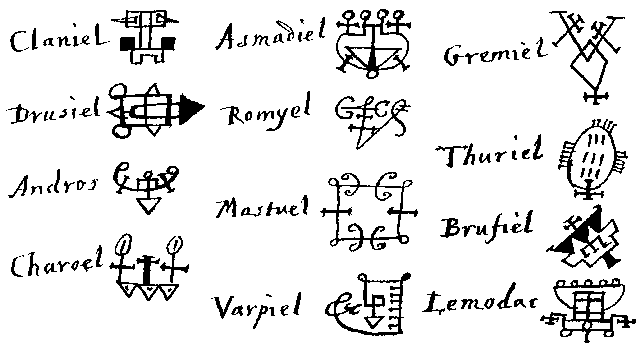 Claniel
Drusiel
Andros
Charoel
Asmadiel
Romyel
Mastuel
Varpiel
Gremiel
Thuriel
Brufiel
Lemodac